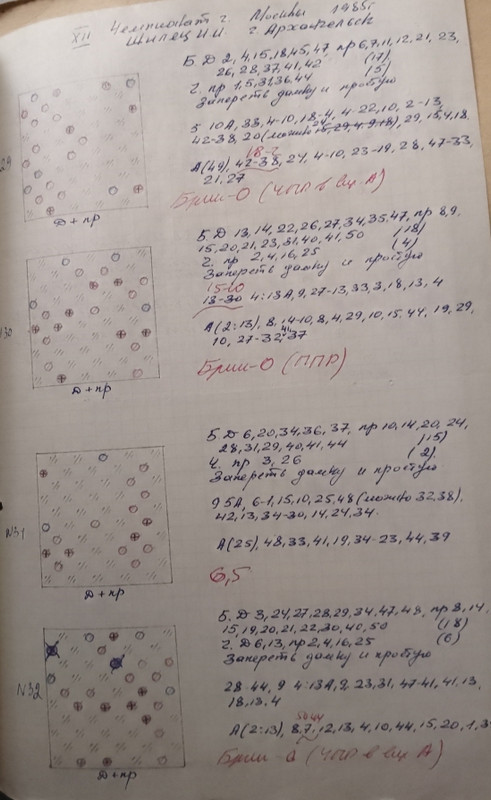 XII Чемпионат г. Москвы 1985г
Шилец И.И. г. Архангельск
Б. Д 2, 4, 15, 18, 45, 47, пр 6, 7, 11, 12, 21, 23,
26, 28, 37, 41, 42 (17)
Ч. пр 1, 5, 31, 36, 44 (5)
Запереть дамку и простую
5 10А, 33, 4-10, 18-4, 4-22, 10, 2-13,
42-38, 20 (можно 15-29, 4, 9, 18), 29, 15, 4, 18,
24
18-2
А(49), 42-38, 24, 4-10, 23-19, 28, 47-33,
21, 27
Д + пр
Б. Д 13, 14, 22, 26, 27, 34, 35, 47, пр 8, 9,
15, 20, 21, 23, 31, 40, 41, 50 (18)
Ч. пр 2, 4, 16, 25 (4)
Запереть дамку и простую
13-30 4:13А, 9, 27-13, 33, 3, 18, 13, 4
А(2:13), 8, 14-10, 8, 4, 29, 10, 15, 44, 19, 29,
10, 27-32, 37
Д + пр
(ППР)
N31
Б Д 6, 20, 34, 36, 37, пр 10, 14, 20, 24,
28, 31, 29, 40, 41, 44 (15)
Ч. пр 3, 26 (2)
Запереть дамку и простую
9 5А, 6-1, 15, 10, 25, 48 (можно 32, 38),
42, 13, 34-30, 14, 24, 34.
А(25), 48, 33, 41, 19, 34-23, 44, 39
Д + пр
6,5
N32
Б. Д 3, 24, 27, 28, 29, 34, 47, 48, пр 8, 14,
15, 19, 20, 21, 22, 30, 40, 50 (18)
Ч. Д 6, 13, пр 2, 4, 16, 25 (6)
Запереть дамку и простую
28-44, 9 4:13А, 9, 23, 31, 47-41, 41, 13,
18, 13, 4
А(2:13), 8, 7, 12, 13, 4, 10, 44, 15, 20, 1,
Д + пр